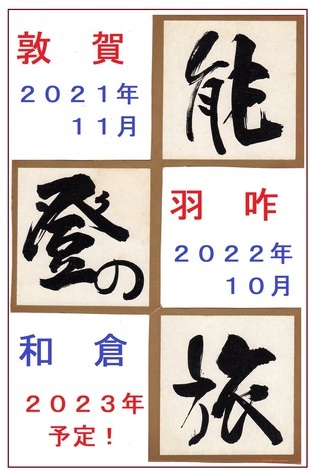 敦賀
2021年
11月
能
登の
羽咋
2022年
10月
和倉
2023年
予定！
旅